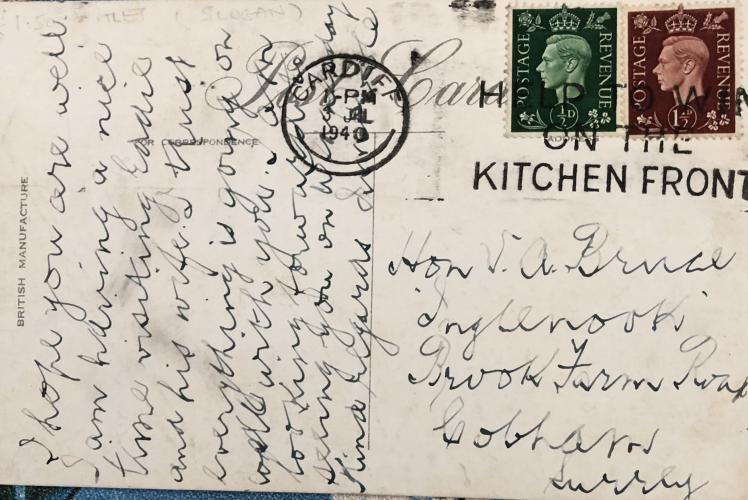 (SLOGAN)
Post Card
BRITISH MANUFACTURE
FOR CORRESPONDENCE
I hope you are well
I am having a nice
time visiting Eddie
and his wife. I trust
everything is going on
well with you. I am
looking towards
seeing you on
Kind Regards
CARDIFF
PM
JL
1940
POSTAGE REVENUE
½D
POSTAGE REVENUE
1½D
HELP TO WIN
ON THE
KITCHEN FRONT
Hon V. A. Bruce
"Inglenook"
Brook Farm Road
Cobham
Surrey